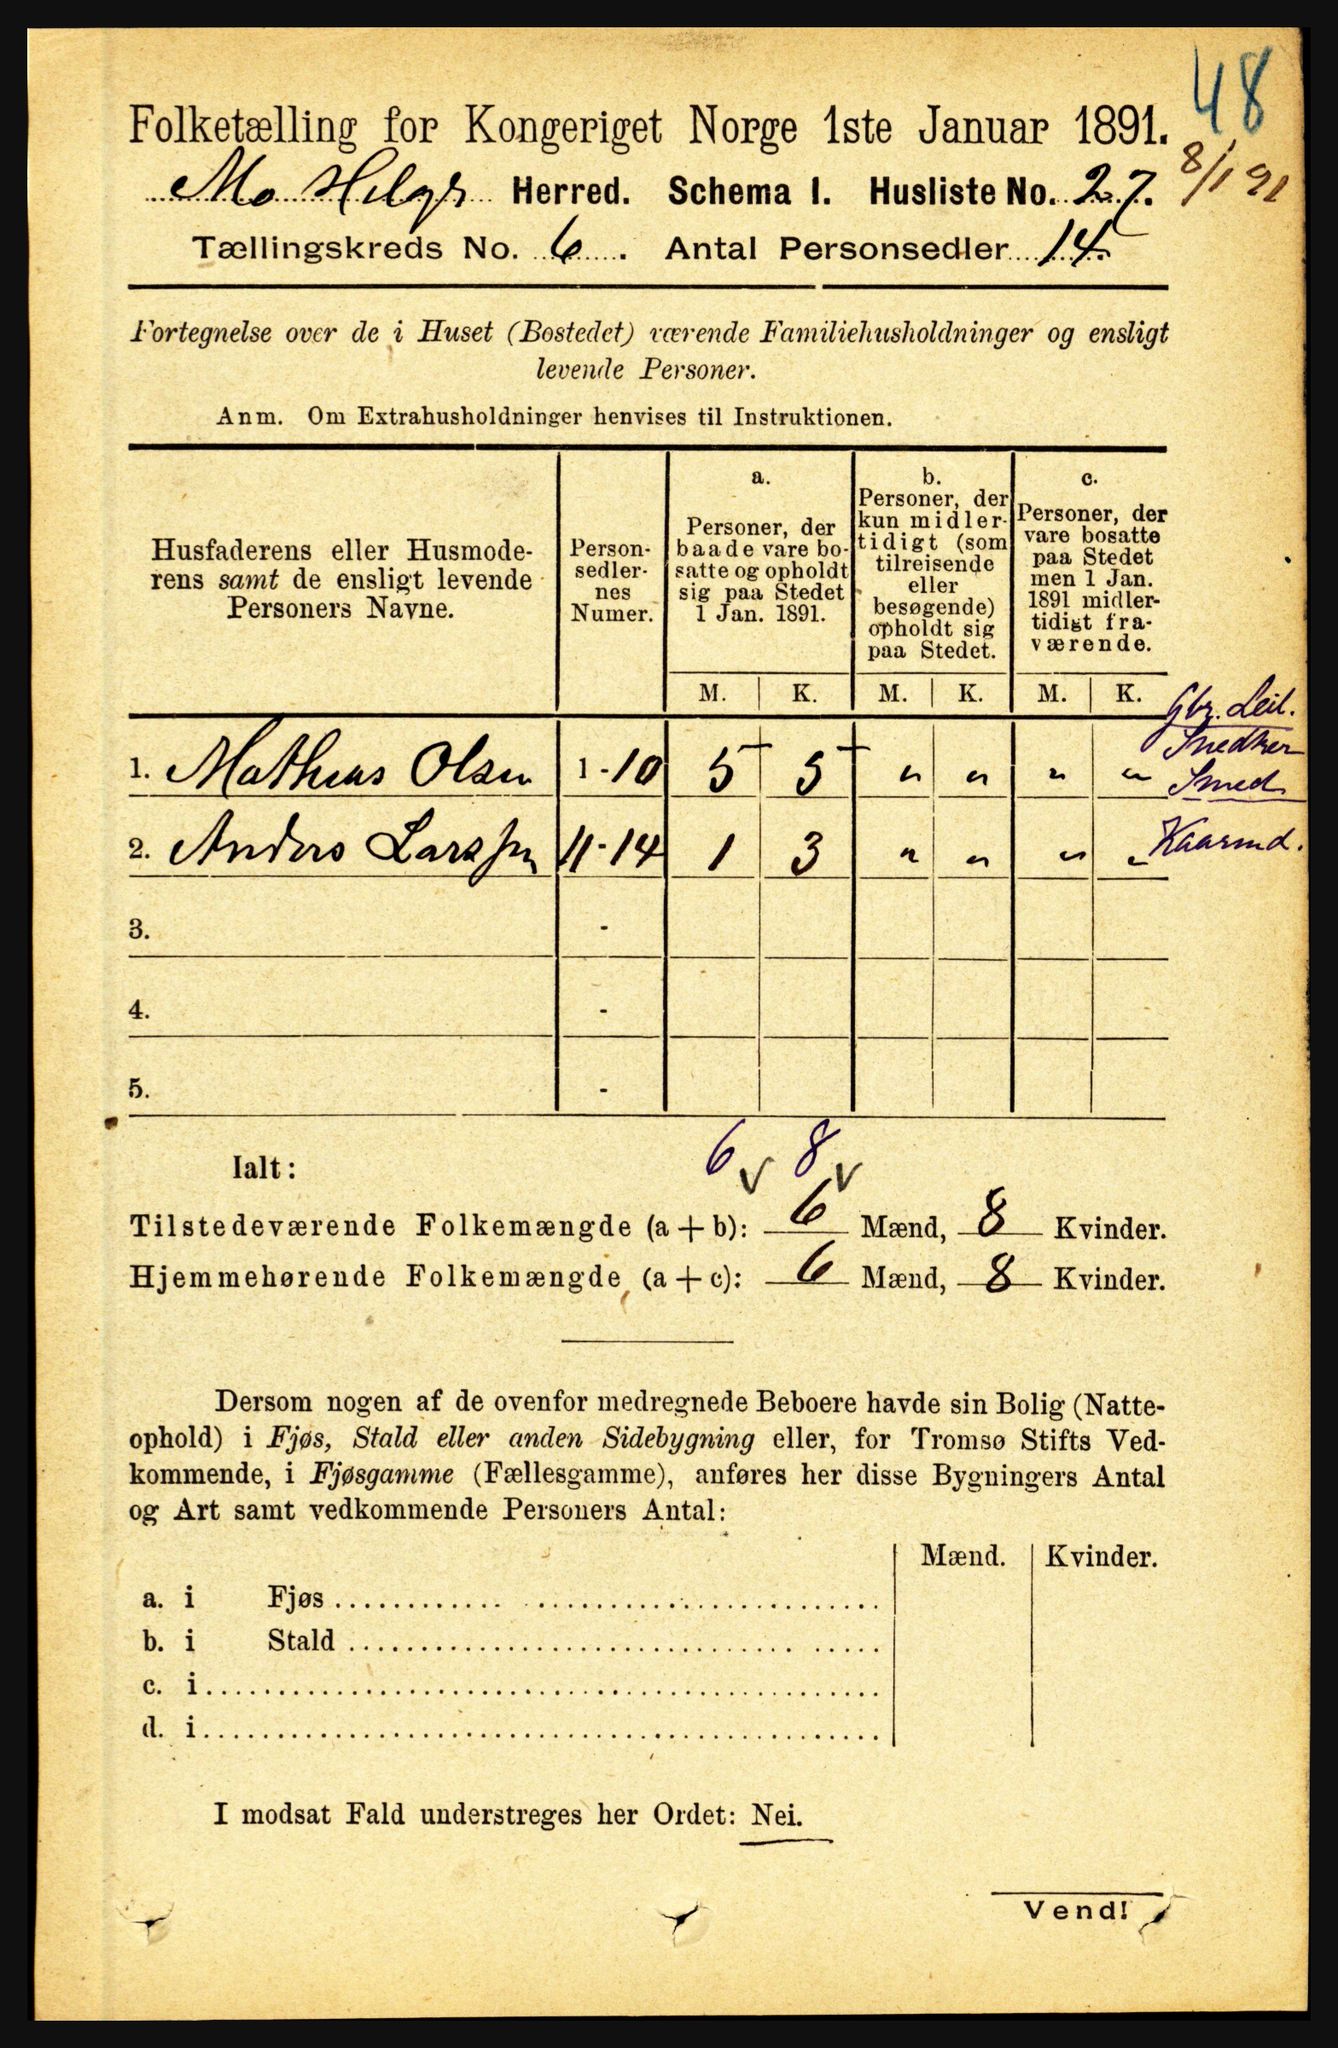 48
Folketælling for Kongeriget Norge 1ste Januar 1891.
8/1 91
Mo Helgl Herred. Schema I. Husliste No. 27.
Tællingskreds No. 6. Antal Personsedler 14.
Fortegnelse over de i Huset (Bostedet) værende Familiehusholdninger og ensligt
levende Personer.
Anm. Om Extrahusholdninger henvises til Instruktionen.
Husfaderens eller Husmode-
rens samt de ensligt levende
Personers Navne.
Person-
sedler-
nes
Numer.
a.
Personer, der
baade vare bo-
satte og opholdt
sig paa Stedet
1 Jan. 1891.
b.
Personer, der
kun midler-
tidigt (som
tilreisende
eller
besøgende)
opholdt sig
paa Stedet.
c.
Personer, der
vare bosatte
paa Stedet
men 1 Jan.
1891 midler-
tidigt fra-
værende.
M. K. M. K. M. K.
Gbr. Leil.
Snedker
Smed
1. Mathias Olsen 1 - 10 5 5 " " " "
2. Anders Larssen 11 - 14 1 3 " " " " Kaarmd.
3. -
4. -
5. -
6 v 8 v
Ialt:
Tilstedeværende Folkemængde (a + b): 6 Mænd, 8 Kvinder.
Hjemmehørende Folkemængde (a + c): 6 Mænd, 8 Kvinder.
Dersom nogen af de ovenfor medregnede Beboere havde sin Bolig (Natte-
ophold) i Fjøs, Stald eller anden Sidebygning eller, for Tromsø Stifts Ved-
kommende, i Fjøsgamme (Fællesgamme), anføres her disse Bygningers Antal
og Art samt vedkommende Personers Antal:
Mænd. Kvinder.
a. i Fjøs
b. i Stald
c. i
d. i
I modsat Fald understreges her Ordet: Nei.
Vend!